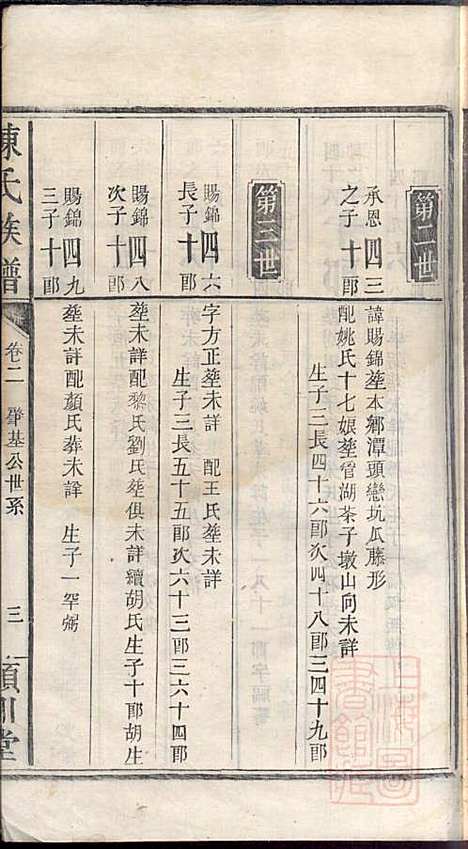 第二世
承恩 四三
之子 十郎
諱賜錦塟本鄉潭頭巒坑瓜藤形
配姚氏十七娘塟管湖茶子墩山向未詳
生子三長四十六郎次四十八郎三四十九郎
第三世
賜錦 四六
長子 十郎
字方正塟未詳 配王氏塟未詳
生子三長五十五郎次六十三郎三六十四
賜錦 四八
次子 十郎
塟未詳配黎氏劉氏塟俱未詳續胡氏生子十郎胡生
賜錦 四九
三子 十郎
塟未詳配顏氏葬未詳 生子一罕弼
陳氏族譜
卷二 肇基公世系
三
潁川堂